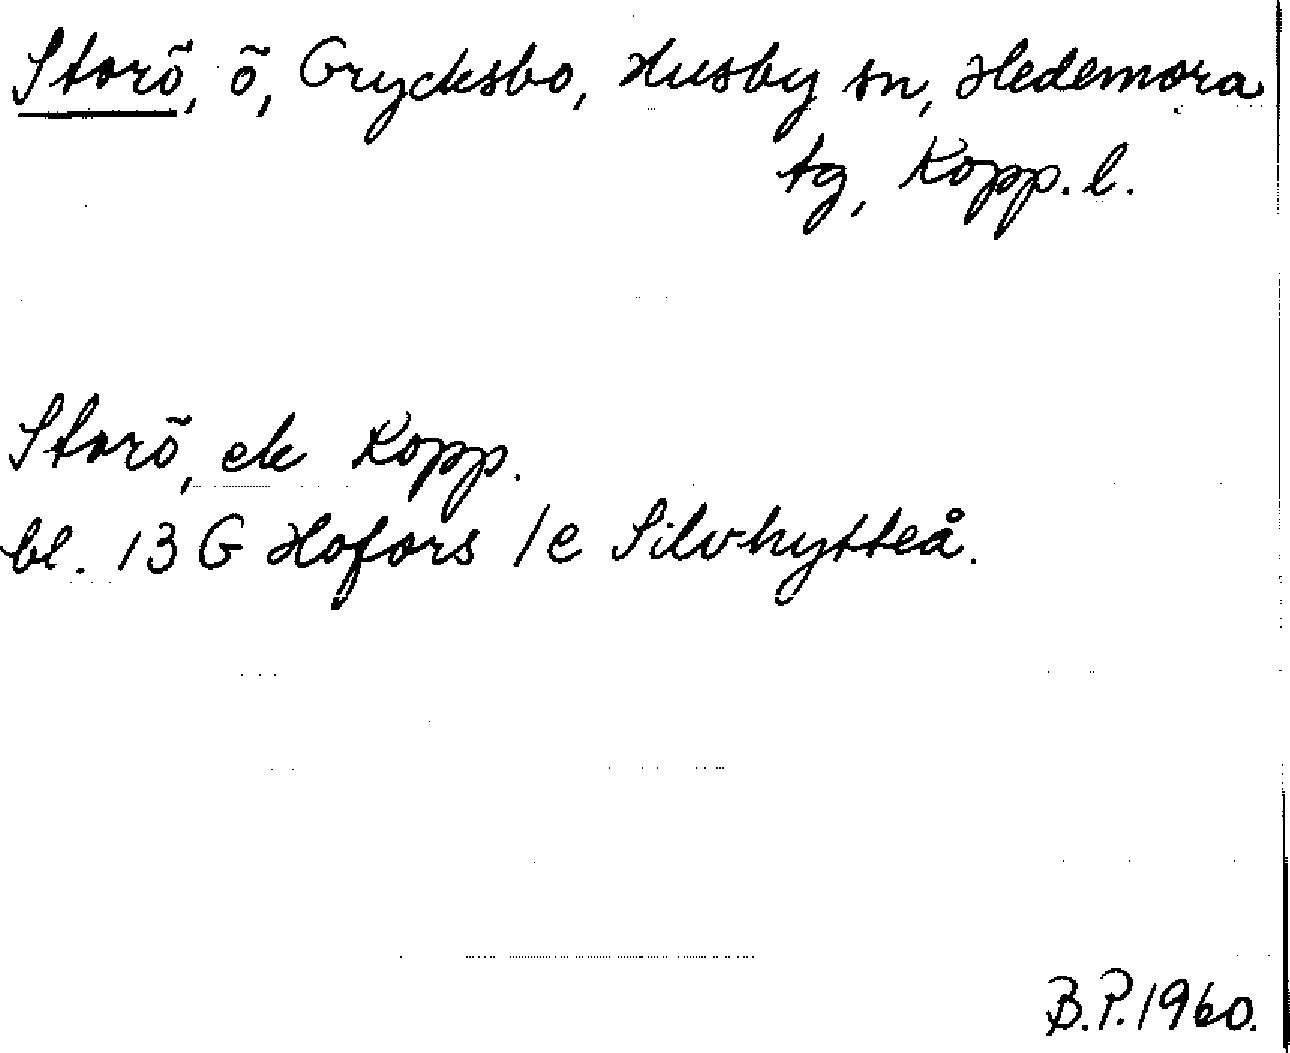 Storö, ö, Grycksbo, Husby sn, Hedemora
tg, Kopp. l.
Storö, ek Kopp.
bl. 13 G Hofors 1c Silvhytteå.
B.P. 1960.